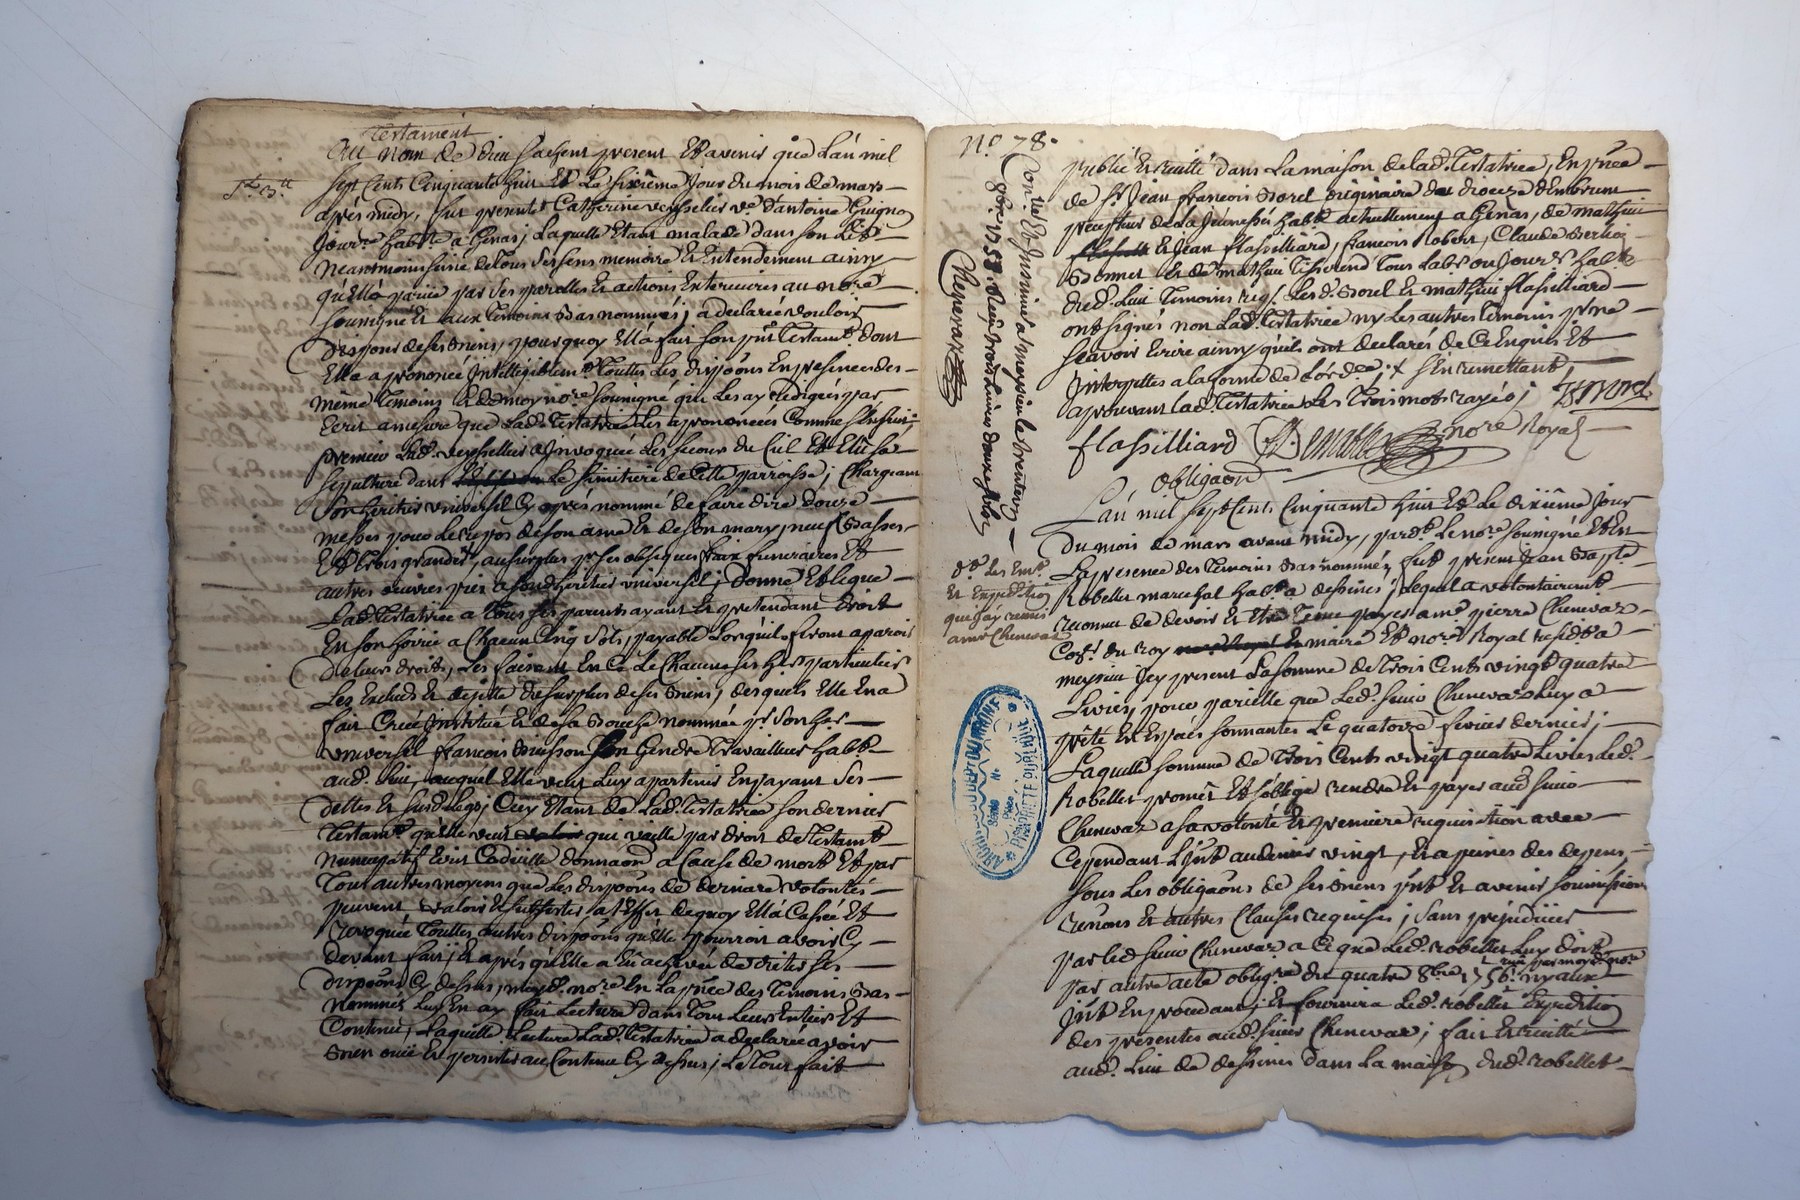 Testament
Au nom de dieu sachent present Et avenir que L'an mil
sept Cents Cinquante huit Et Le sixième Jour du mois de mars
après midy, fut presente Catherine veysselier v.e d'antoine Guignon
Jour.re habt.e a Genas; Laquelle Etant malade dans son Lit
Neantmoins saine de tous ses sens memoire Et Entendement ainsy
qu'Ell'a parûe par ses parolles Et actions Exterieures au no.re
soussigné Et aux temoins Bas nommés; a declarée vouloir
Disposer de ses Biens, pourquoy Ell'a fait son p.nt Testam.t dont
Elle a prononcée Jntelligiblem.t Touttes Les disp.ons En presence des
même temoins Et de moy no.re soussigné qui Les ay redigées par
Ecrit amesure que Lad. Testatrice Les a prononcées Comme s'Ensuit
premier Lad. veysselier a Jnvoquée Les secours du Ciel Et Elit sa
sepulture dans Le simitiere de Cette parroisse; Chargeant
son heritier universel Cy après nommé de faire dire douze
messes pour Le repos de son ame Et de son mary, neuf Basses
Et trois grandes, au surplus p.r ses obseques fraix funeraires Et
autres œuvres pies a sond. heritier universel; donne Et Legue
Lad. Testatrice a Tous ses parents ayant Et pretendant droit
En son hoirie a Chacun Cinq sols, payable Lorsqu'ils feront aparoir
De leurs droits, Les faisant En Ce Le Chacun ses h.ers particuliers
Les Exclud Et dejette du surplus de ses Biens, desquels Elle En a
fait Créé Jnstitué Et de sa Bouche nommée p.r son h.er
universel François Buisson son Gendre Travailleur habt.
aud. Lieu, auquel Elle veut Luy apartenir En payant ses
dettes Et susd. Legs; Cecy Etant de Lad. Testatrice son dernier
Testam.t qu'Elle veut que vaille par droit de Testamt.
Nuncupatif Ecrit Codicille donnaon a Cause de mort Et par
Tout autres moyens que Les disp.ons de derniere volontés
peuvent valoir Et subsister a l'Effet de quoy Ell'a Cassée Et
revoquée Touttes autres disp.ons qu'Elle pourroit avoir Cy
devant fait; Et après qu'Elle a Eu achevée de dicter ses
disp.ons Cy dessus, moyd. no.re En La p.nce des Temoins Bas
Nommés Luy En ay fait Lecture dans Tout Leur Entier Et
Contenu; Laquelle Lecture Lad. Testatrice a declarée avoir
Bien ouïe Et persister au Contenu Cy dessus; Le Tout fait
N.o 78.
publié Et recitté dans La maison de Lad. Testatrice, En p.nce
de S.r Jean françois Borel originaire du dioceze d'Embrun
precepteur de La Jeunesse habt. actuellement a Genas, de mathieu
Et Jean flassilliard, françois Robert, Claude Berlioz
Bonnet Et de mathieu Tisserend Tous Lab.rs ou Jour.rs habt.s
dud. Lieu Temoins req.s Lesd. Borel Et mathieu flassilliard
ont signés non Lad. Testatrice ny Les autres temoins pour ne
scavoir Ecrire ainsy qu'ils ont declarés de Ce Enquis Et
Jnterpellés a La forme de L'ord.ce;
aprouvant Lad. Testatrice Les Trois mots rayés; Borel
flassilliard no.re Royal
obligaon
L'an mil sept Cents Cinquante huit Et Le dixième Jour
Du mois de mars avant midy, pard.t Le no.re soussigné Et En
La presence des Temoins Bas nommés, fut present Jean Bapt.e
Robellet marechal habt. a dessines; Lequel a volontairemt.
reconnu de devoir Et a m.e pierre Chenevaz
Con.r du Roy maire Et no.re Royal resid.t a
meysieu Jcy present La somme de Trois Cents vingt quatre
Livres pour parielle que Led. sieur Chenevaz Luy a
prêté En Espèces sonnantes Le quatorze fevrier dernier;
Laquelle somme de Trois Cents vingt quatre Livres Led.
Robellet promet Et s'oblige rendre Et payer aud. sieur
Chenevaz a sa volonté Et première requisition avec
Cependant L'Jnt. au denier vingt, Et a peines des depens,
sous Les obligaons de ses Biens p.nt Et avenir soumissions
renons Et autres Clauses requises; sans prejudicier
par led. sieur Chenevaz a Ce que Led. robellet Luy doit
par autre acte oblig.re du quatre 8bre 1756. reçu par moyd. no.re ny aux
Jnt. En procedant; Et fournira Led. robellet Expedition
des presentes aud. sieur Chenevaz; fait Et recitté
aud. Lieu de dessines dans La maison dud. robellet
Con.lé Et Jnsinué a meysieu le trente
1758. Reçu trois Livres douze sols
d.t Les Em.ts
Et Expedition
que j'ay remis
a m.e Chenevaz
ARCHIVES DU RHÔNE